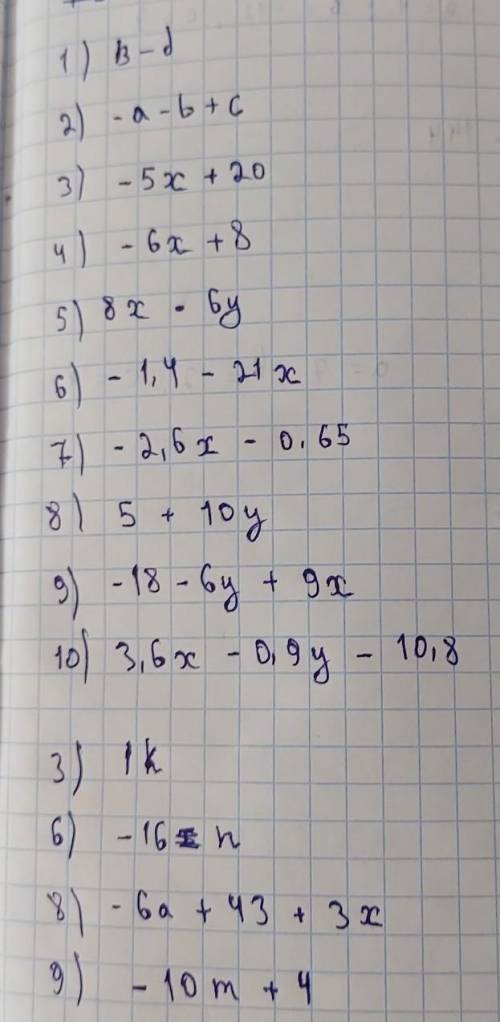 1) в - d
2) - a - b + c
3) - 5x + 20
4) - 6x + 8
5) 8x - 6y
6) - 1,4 - 21x
7) - 2,6x - 0.65
8) 5 + 10y
9) -18 - 6y + 9x
10) 3,6x - 0,9y - 10,8
3) 1k
6) -16 - n
8) - 6a + 43 + 3x
9) - 10m + 4